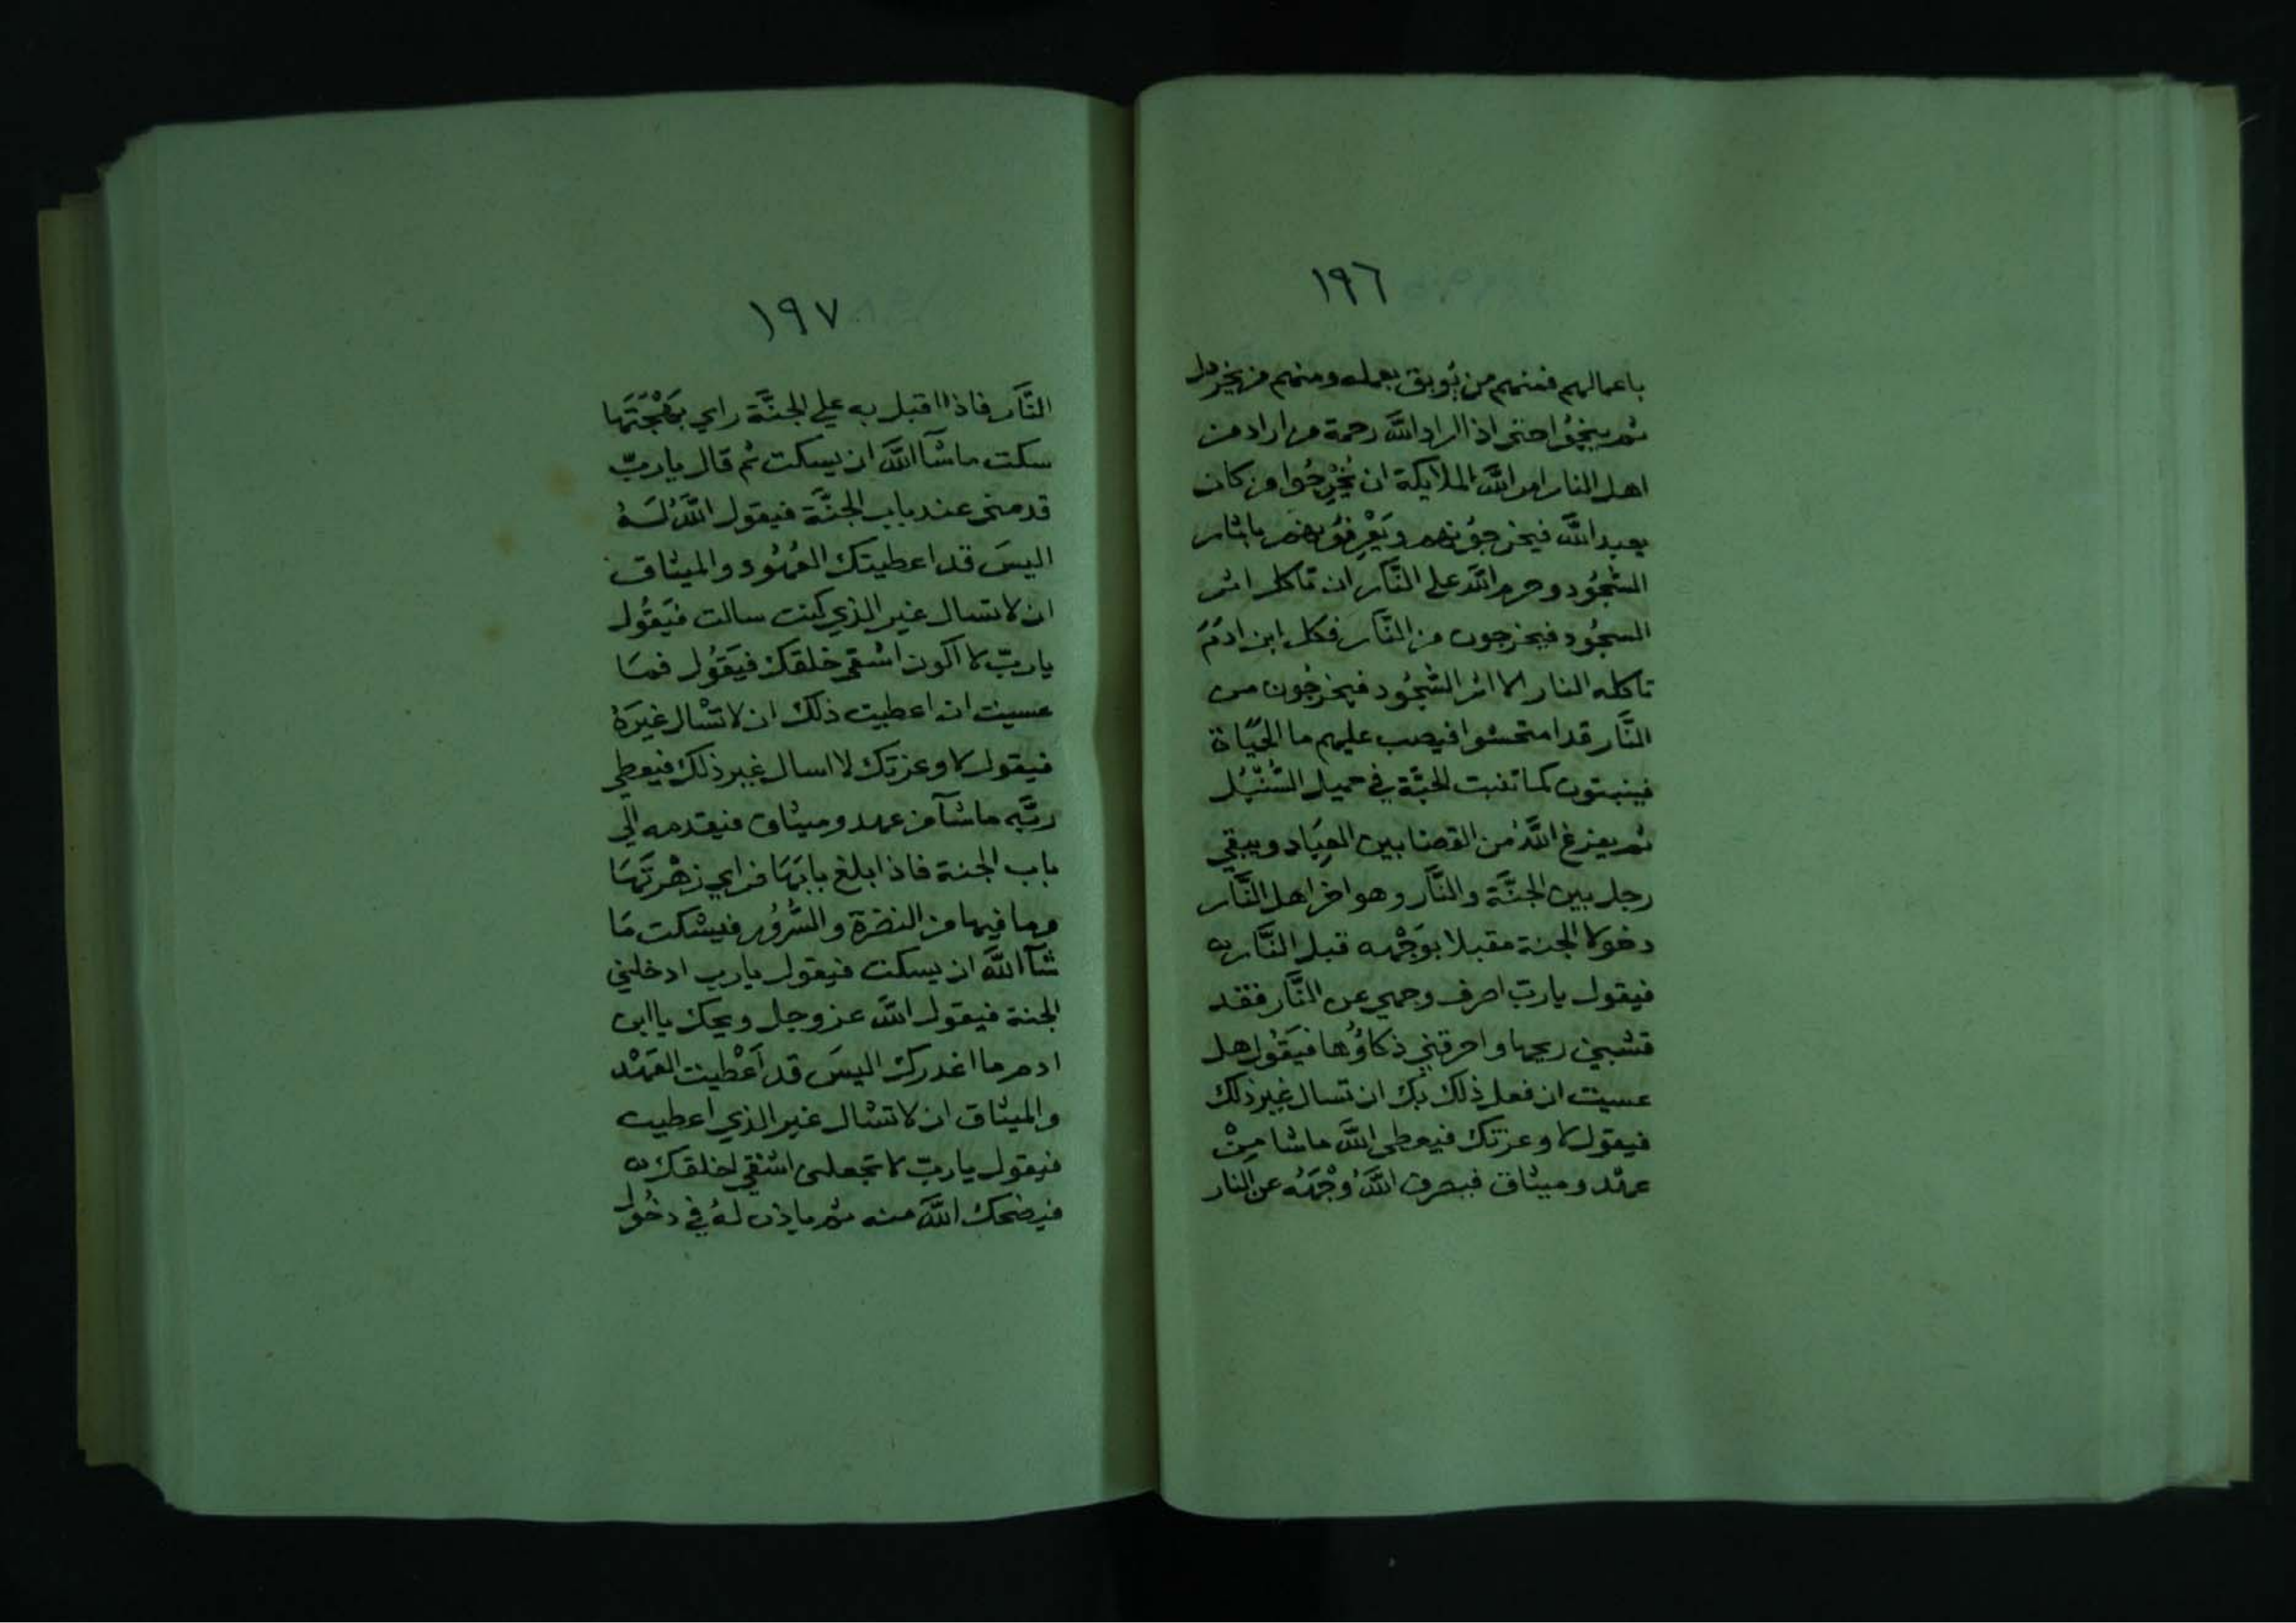 ١٩٦
باعمالهم فمنهم من يُوبق بعمله ومنهم من يخردل
ثم ينجوُا حتى اذا اراد اللَّه رحمة من اراد من
اهل النار امر اللَّه الملايكة ان يُخْرِجُوا من كان
يعبد اللَّه فيخرجوُنهم ويَعْرِفوُنهم باثار
السُّجُود وحرم اللَّه على النَّار ان تاكل اثر
السجُود فيخرجون من النَّار فكل ابن ادَمَ
تاكله النار الا اثر السُّجُود فيخرجُون من
النَّار قد امتحشوا فيصب عليهم ما الحيَاة
فينبتون كما تنبت الحبَّة في حميل السَّيْل
ثم يفرغ اللَّهُ من القضا بين العِبَاد ويبقي
رجل بين الجنَّة والنَّار وهو اخر اهل النَّار
دخولا الجنة مقبلا بوَجْهه قبل النَّار
فيقول يا ربّ اصرف وجهي عن النَّار فقد
قشبني ريحها واحرقني ذكاوُها فيَقُول هل
عسيت ان فعل ذلك بك ان تسال غير ذلك
فيقول لا وعزتك فيعطي اللَّه ما شا مِنْ
عهْد وميثاق فيصرف اللَّهُ وَجْهَهُ عن النار
١٩٧
النَّار فاذا اقبل به علي الجنَّة راي بَهْجَتَهَا
سكت ما شآ اللَّه ان يسكت ثم قال يا ربّ
قدمني عند باب الجنَّة فيقول اللَّهُ لَهُ
اليسَ قد اعطيتك العُهُود والميثاق
ان لا تسال غير الذي كنت سالت فيَقُول
يا ربّ لا اكون اشقي خلقك فيَقُول فمَا
عسيت ان اعطيت ذلك ان لا تسْال غيرَهُ
فيقول لا وعزتك لا اسال غير ذلك فيعطي
ربَّه ما شآ من عهد وميثاق فيقدمه الي
باب الجنة فاذا بلغ بابَهَا فراي زهْرتَهَا
وما فيها من النضرة والسُّرُور فيسْكت مَا
شآ اللَّه ان يسكت فيقول يا رب ادخلني
الجنة فيقول اللَّه عز وجل ويحك يا ابن
ادم ما اغدرك اليسَ قد اَعْطيت العَهْد
والميثاق ان لا تسْال غير الذي اعطيت
فيقول يا ربّ لا تجعلني اشقي خلقك
فيضحك اللَّه منه ثم ياذن لهُ في دخُول